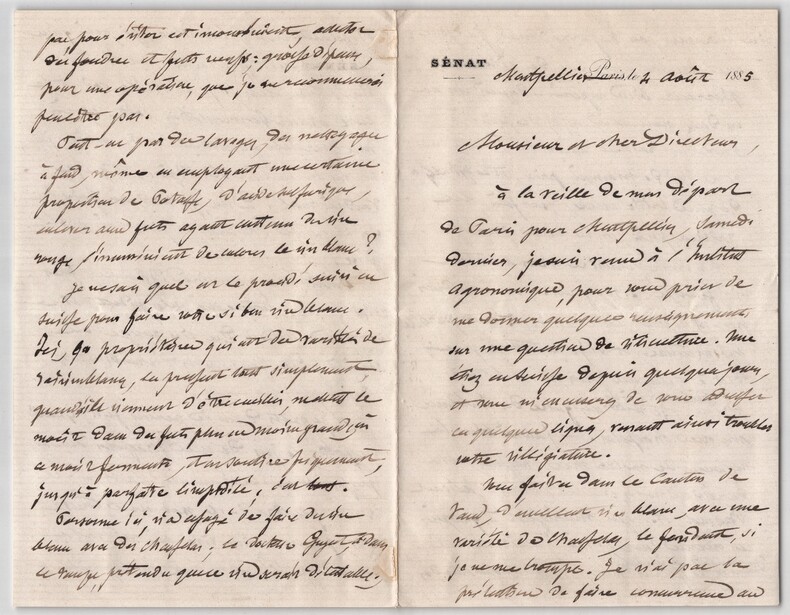 SÉNAT
Montpellier Paris, le 4 Août 1885
Monsieur et cher Directeur,
à la veille de mon départ
de Paris pour Montpellier, Samedi
dernier, je suis venu à l'Institut
agronomique, pour vous prier de
me donner quelques renseignements
sur une question de viticulture. Vous
étiez en Suisse depuis quelques jours,
et vous m'excuserez de vous adresser
ces quelques lignes, venant ainsi troubler
votre villégiature.
Vous faites dans le Canton de
Vaud, d'excellent vin blanc, avec une
variété de Chasselas, le fendant, si
je ne me trompe. Je n'ai pas la
prétention de faire concurrence au
pas pour éviter cet inconvénient, acheter
des foudres et futs neufs: grosse dépense,
pour une opération, que je ne recommencerai
peut-être pas.
Peut-on par des lavages, des nettoyages
à fond, même en employant une certaine
proportion de Potasse, d'acide sulfurique,
enlever aux futs ayant contenu du vin
rouge, l'inconvénient de colorer le vin blanc?
Je ne sais quel est le procédé suivi en
Suisse pour faire votre si bon vin blanc.
Ici, les propriétaires qui ont des variétés de
raisins blancs, les pressent tout simplement,
quand ils viennent d'être cueillis, mettent le
moût dans des futs plus ou moins grands, où
ce moût fermente, et on soutire fréquemment,
jusqu'à parfaite limpidité,
Personne ici, n'a essayé de faire du vin
blanc avec des Chasselas. Le docteur Guyot, dans
le temps, prétendu que ce vin serait détestable.